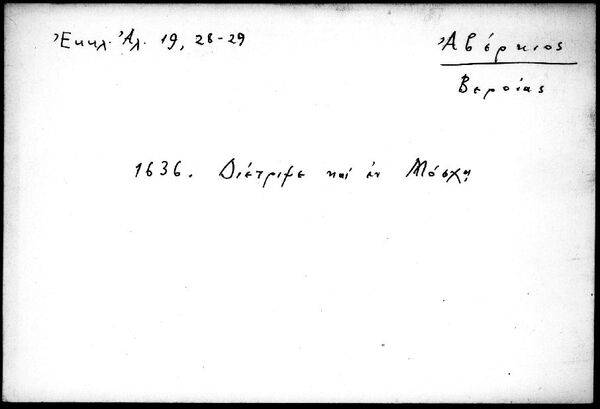 Ἐκκλ. Ἀλ. 19, 28-29
Ἀβέρκιος
Βεροίας
1636. Διέτριψε καί ἐν Μόσχᾳ